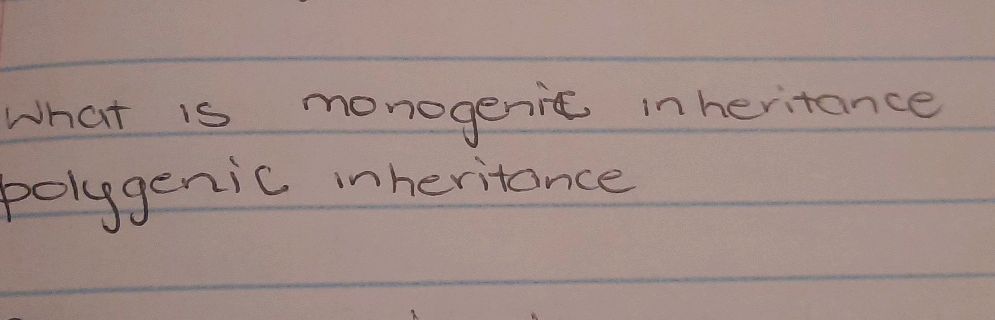 What is monogenic inheritance
polygenic inheritance